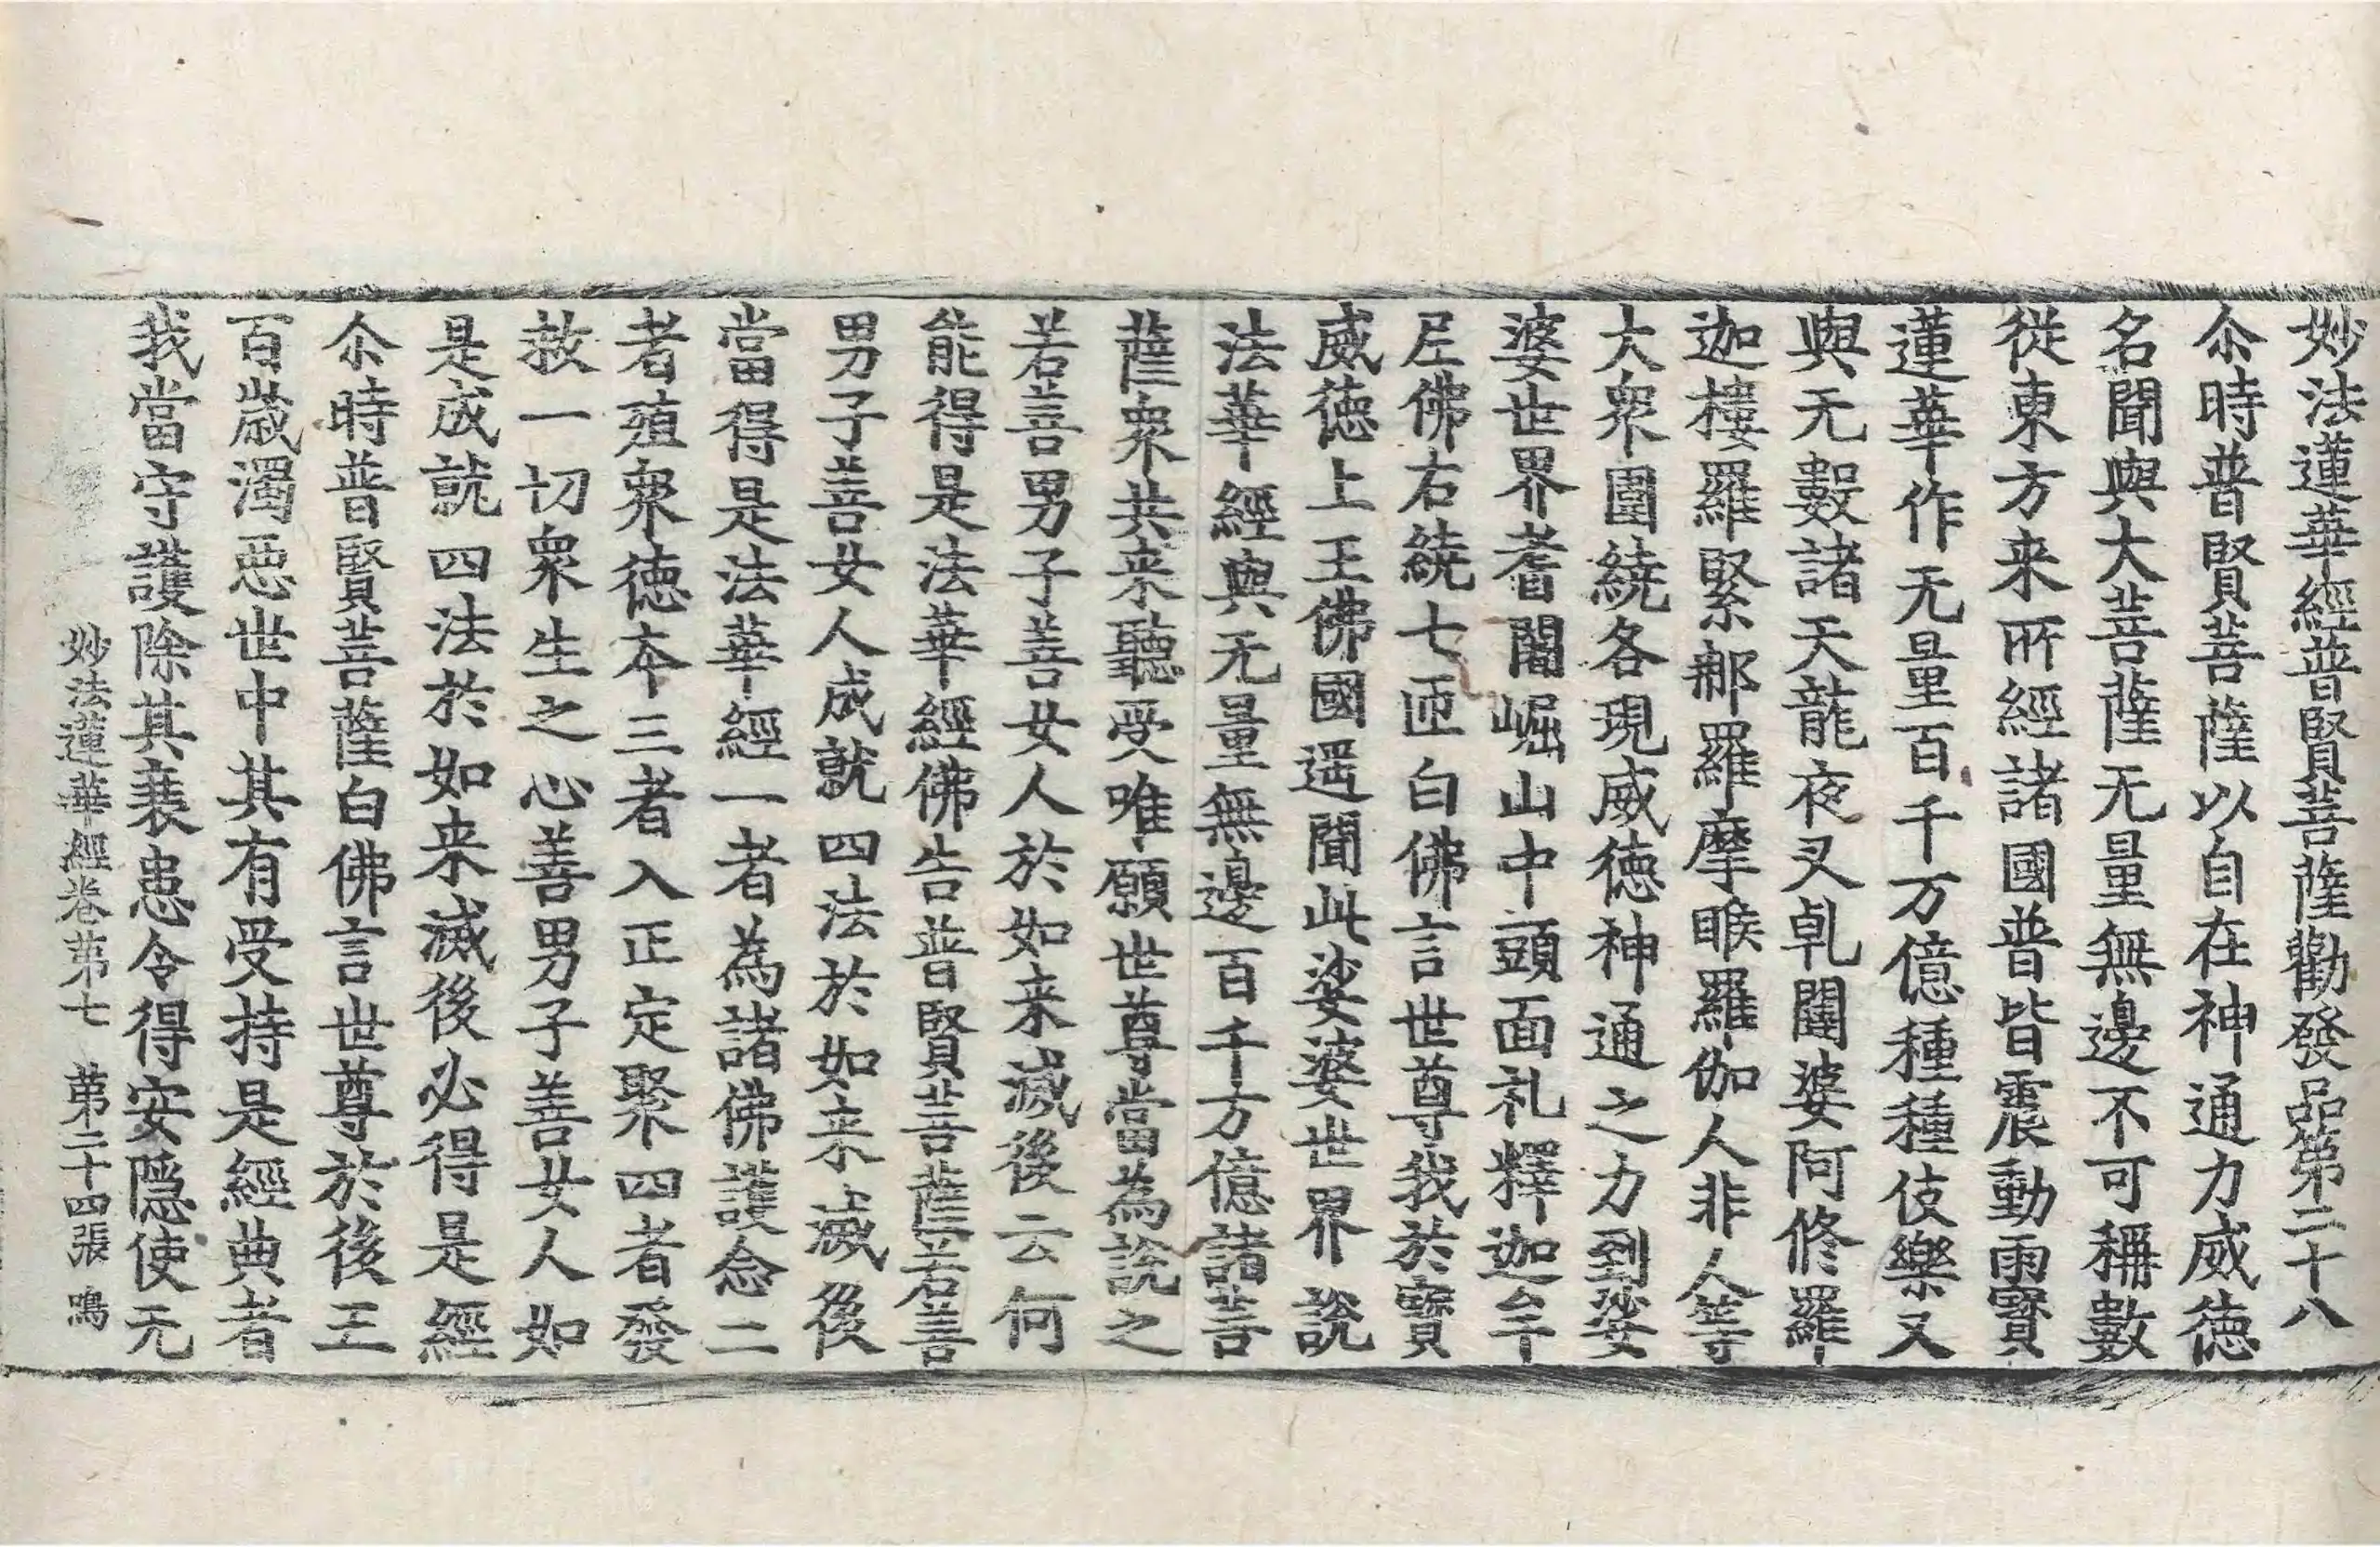 妙法蓮華經普賢菩薩勸發品第二十八
尒時普賢菩薩以自在神通力威徳
名聞與大菩薩无量無邊不可稱數
従東方来所經諸國普皆震動雨寶
蓮華作无量百千万億種種伎樂又
與无數諸天龍夜叉乹闥婆阿修羅
迦樓羅緊那羅摩睺羅伽人非人等
大衆圍繞各現威徳神通之力到娑
婆世界耆闍崛山中頭面礼釋迦牟
尼佛右繞七匝白佛言世尊我於寶
威徳上王佛國遥聞此娑婆世界說
法華經與无量無邊百千万億諸菩
薩衆共来聽受唯願世尊當為說之
若善男子善女人於如来滅後云何
能得是法華經佛告普賢菩薩若善
男子善女人成就四法於如来滅後
當得是法華經一者為諸佛護念二
者殖衆徳夲三者入正定聚四者發
救一切衆生之心善男子善女人如
是成就四法於如来滅後必得是經
尒時普賢菩薩白佛言世尊於後五
百歲濁惡世中其有受持是經典者
我當守護除其衰患令得安隱使无
妙法蓮華經卷苐七 苐二十四張 鳴